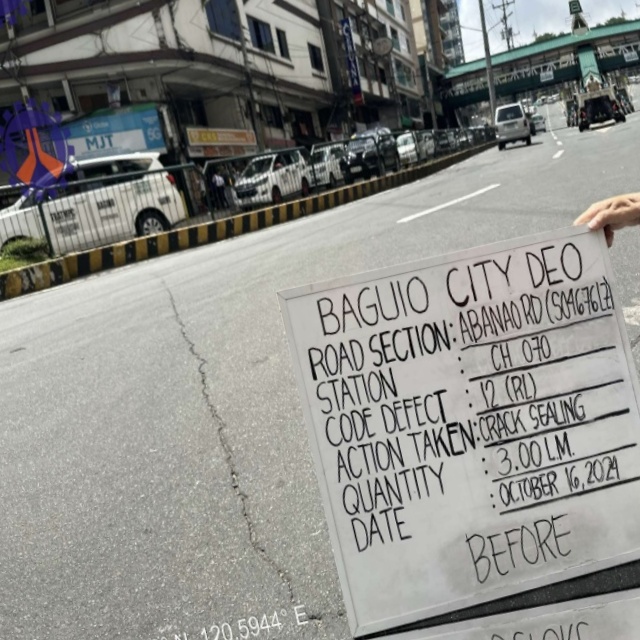 MJT
BAGUIO CITY DEO
ROAD SECTION: ABANAO RD (S04676LZ)
STATION : CH 070
CODE DEFECT : 12 (RL)
ACTION TAKEN: CRACK SEALING
QUANTITY : 3.00 L.M.
DATE : OCTOBER 16, 2024
BEFORE
N, 120.5944° E